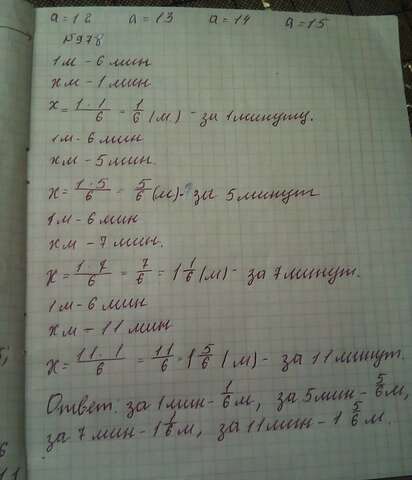 a = 12 a = 13 a = 14 a = 15
№978
1м - 6 мин
хм - 1 мин
х = 1·1/6 = 1/6 (м) - за 1 минуту.
1м - 6 мин
хм - 5 мин.
х = 1·5/6 = 5/6 (м) - за 5 минут
1м - 6 мин
хм - 7 мин.
х = 1·7/6 = 7/6 = 1 1/6 (м) - за 7 минут.
1м - 6 мин
хм - 11 мин
х = 11·1/6 = 11/6 = 1 5/6 (м) - за 11 минут.
Ответ: за 1 мин - 1/6 м, за 5 мин - 5/6 м,
за 7 мин - 1 1/6 м, за 11 мин - 1 5/6 м.